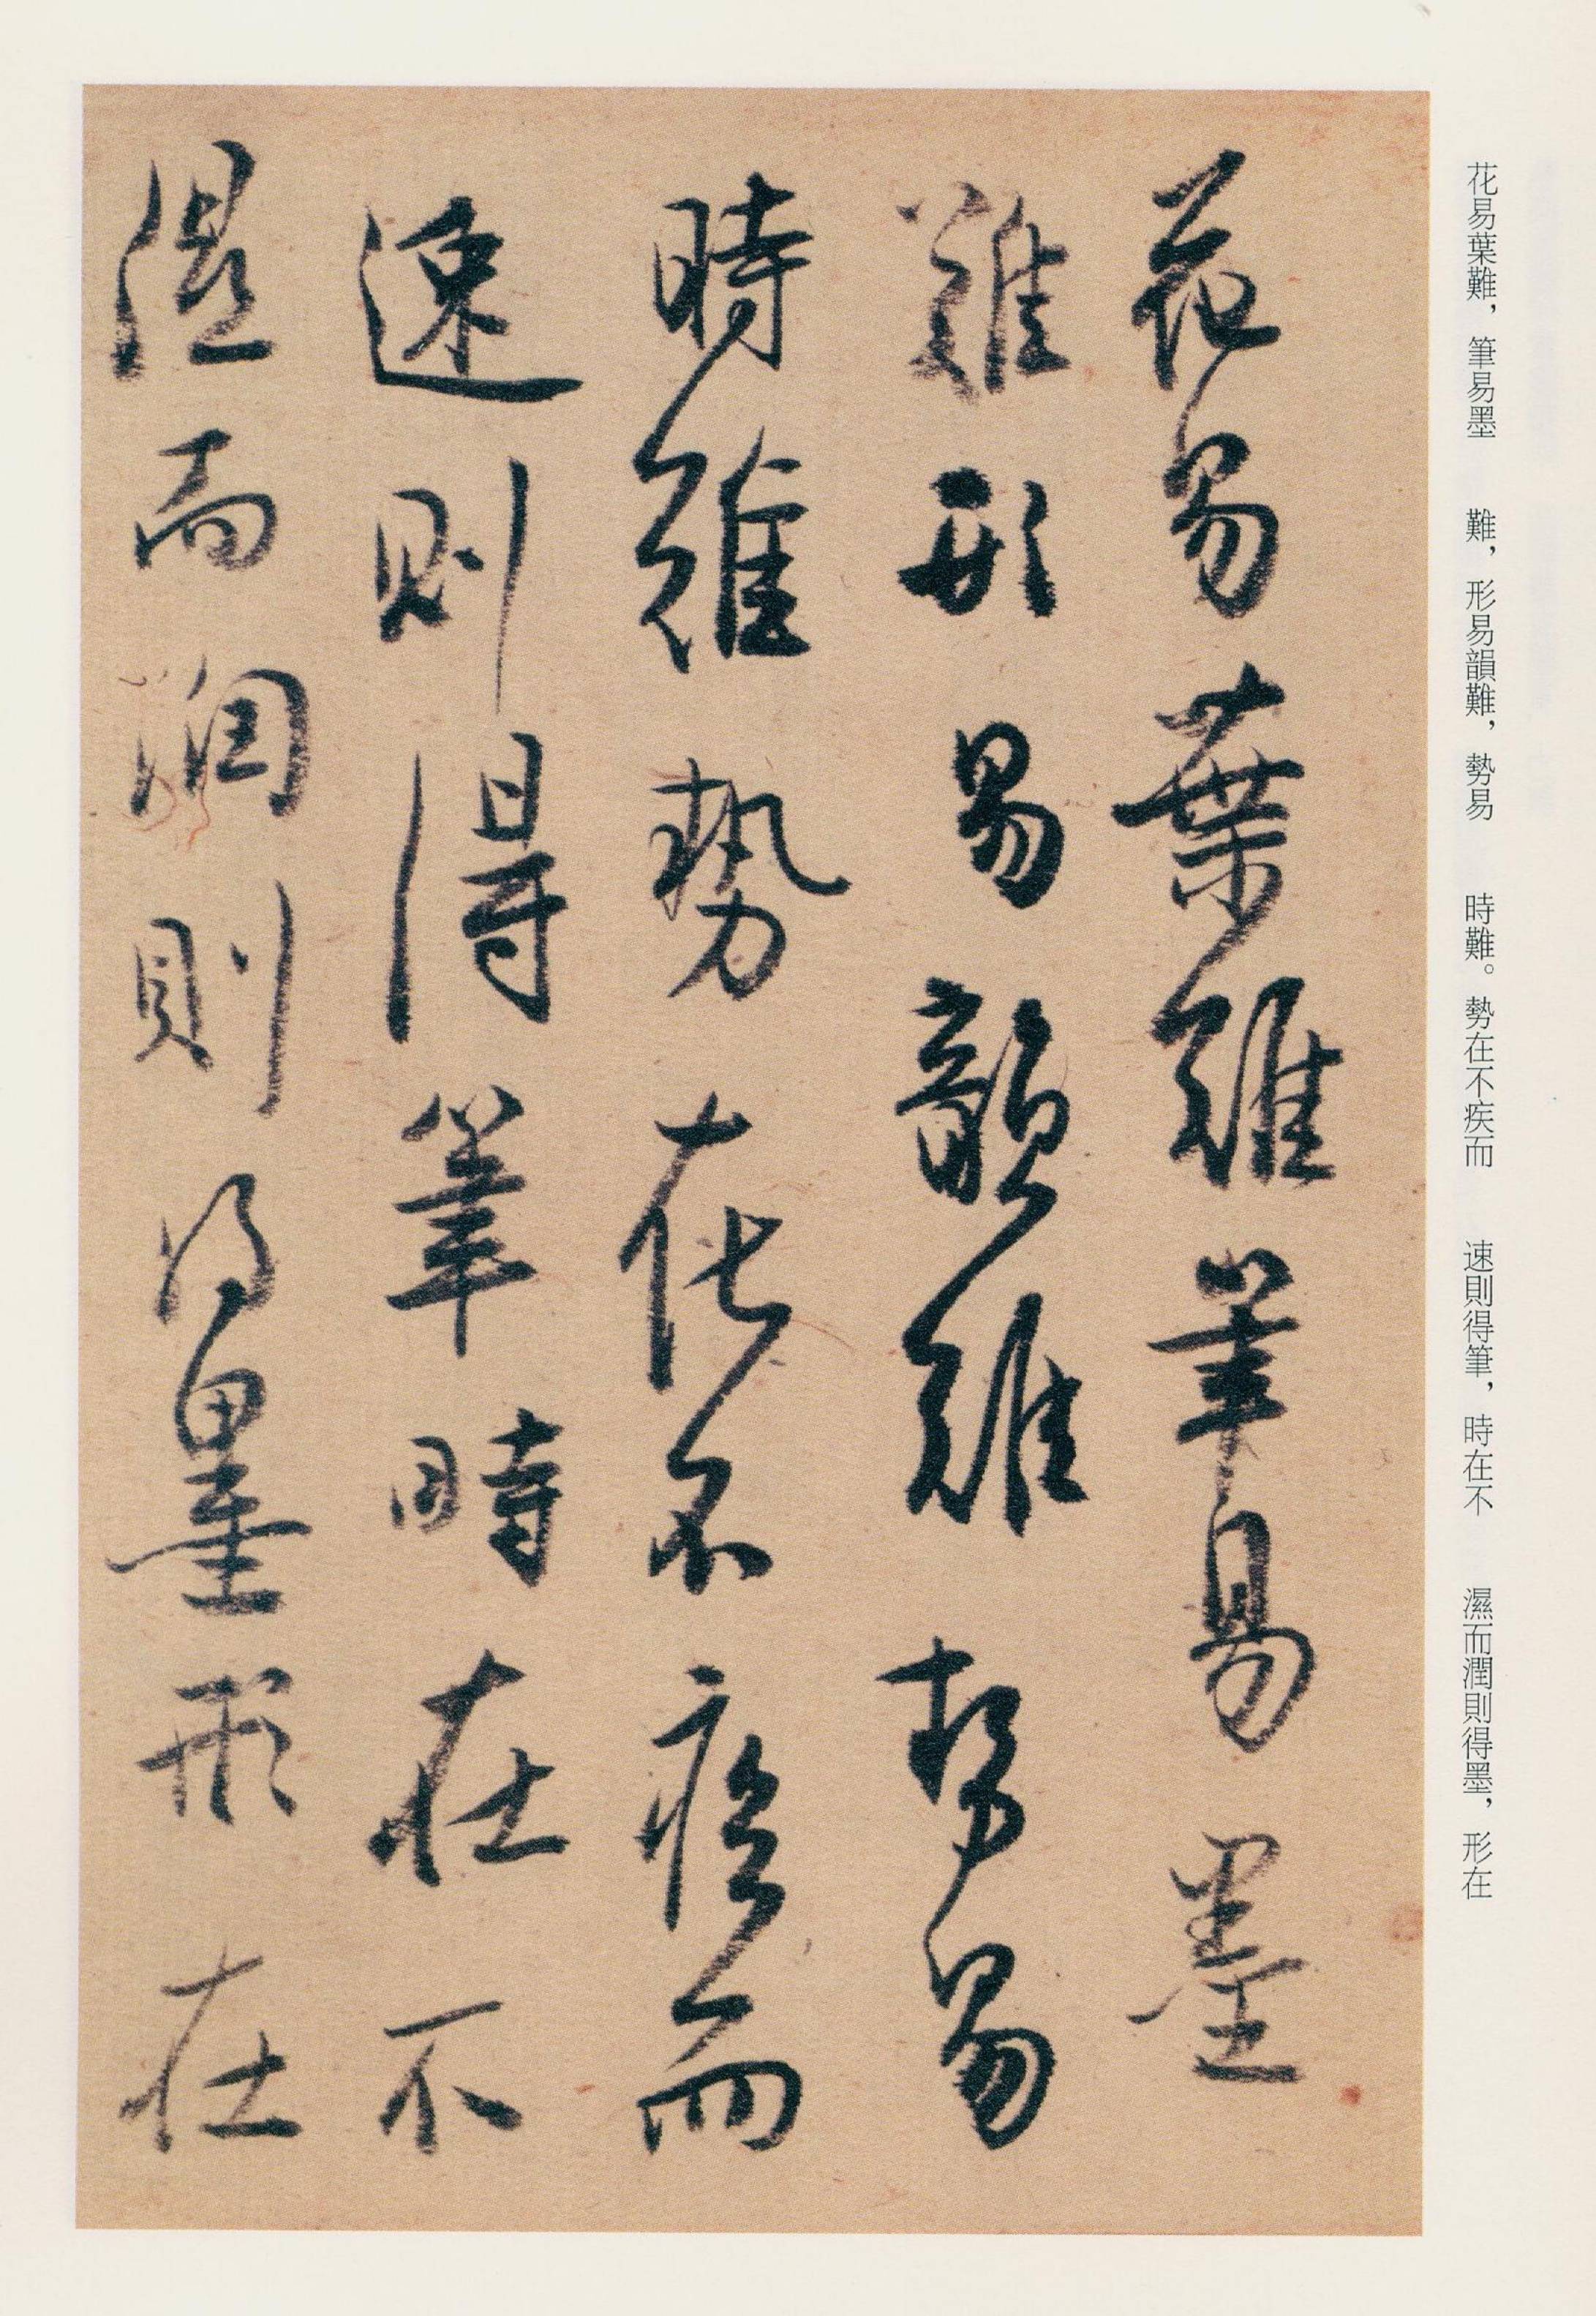 花易葉難，筆易墨　難，形易韻難，勢易　時難。勢在不疾而　速則得筆，時在不　濕而潤則得墨，形在
花易葉難筆易墨
難形易韻難勢易
時難勢在不疾而
速則得筆時在不
濕而潤則得墨形在